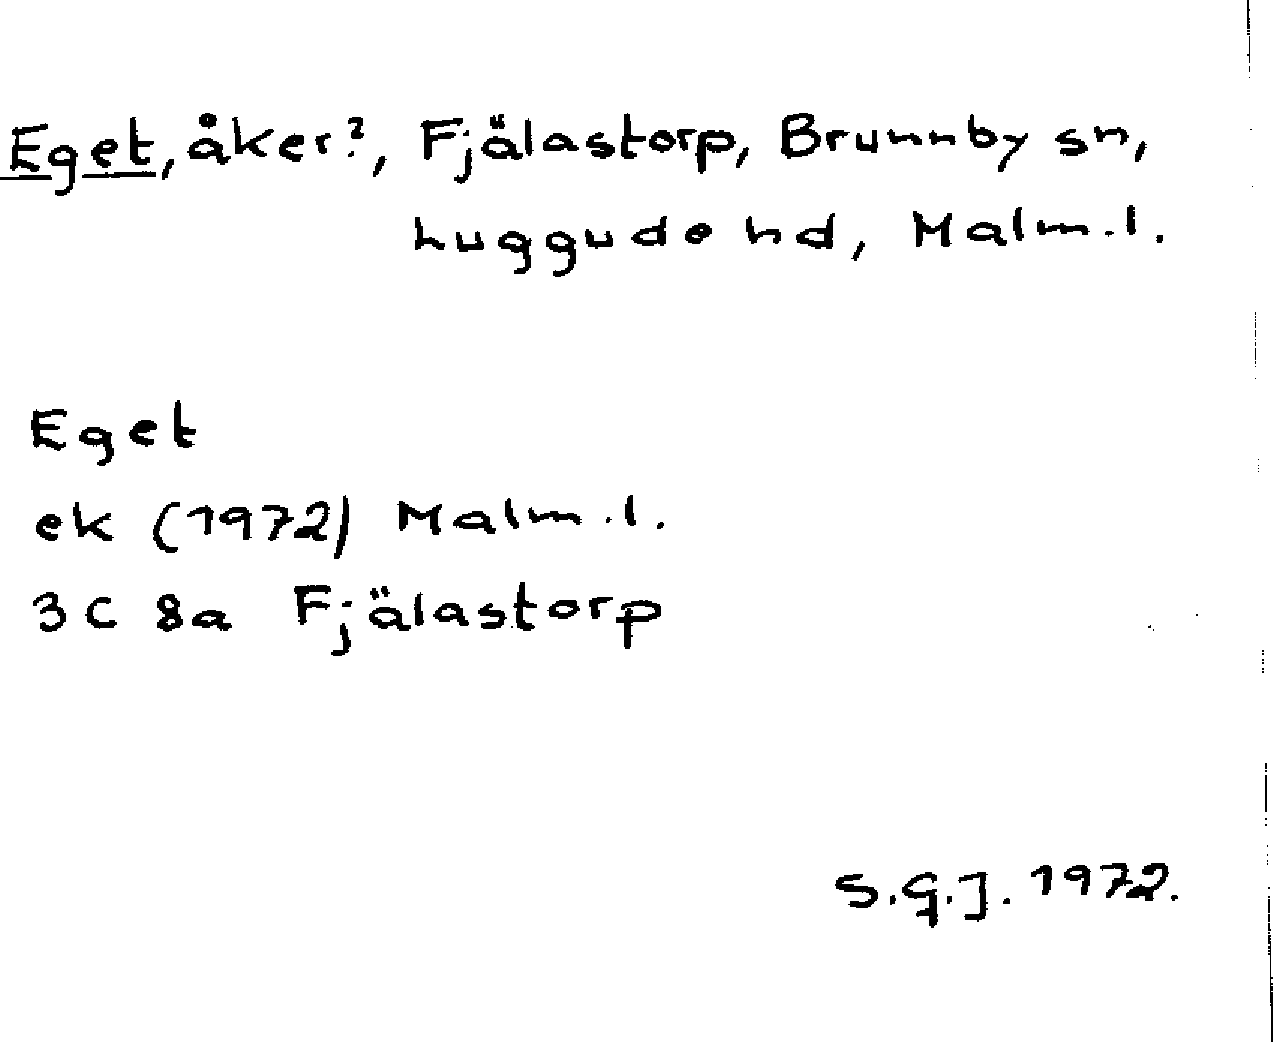 Eget, åker?, Fjälastorp, Brunnby sn,
Luggude hd, Malm.l.
Eget
ek (1972) Malm.l.
3C 8a Fjälastorp
S.G.J. 1972.